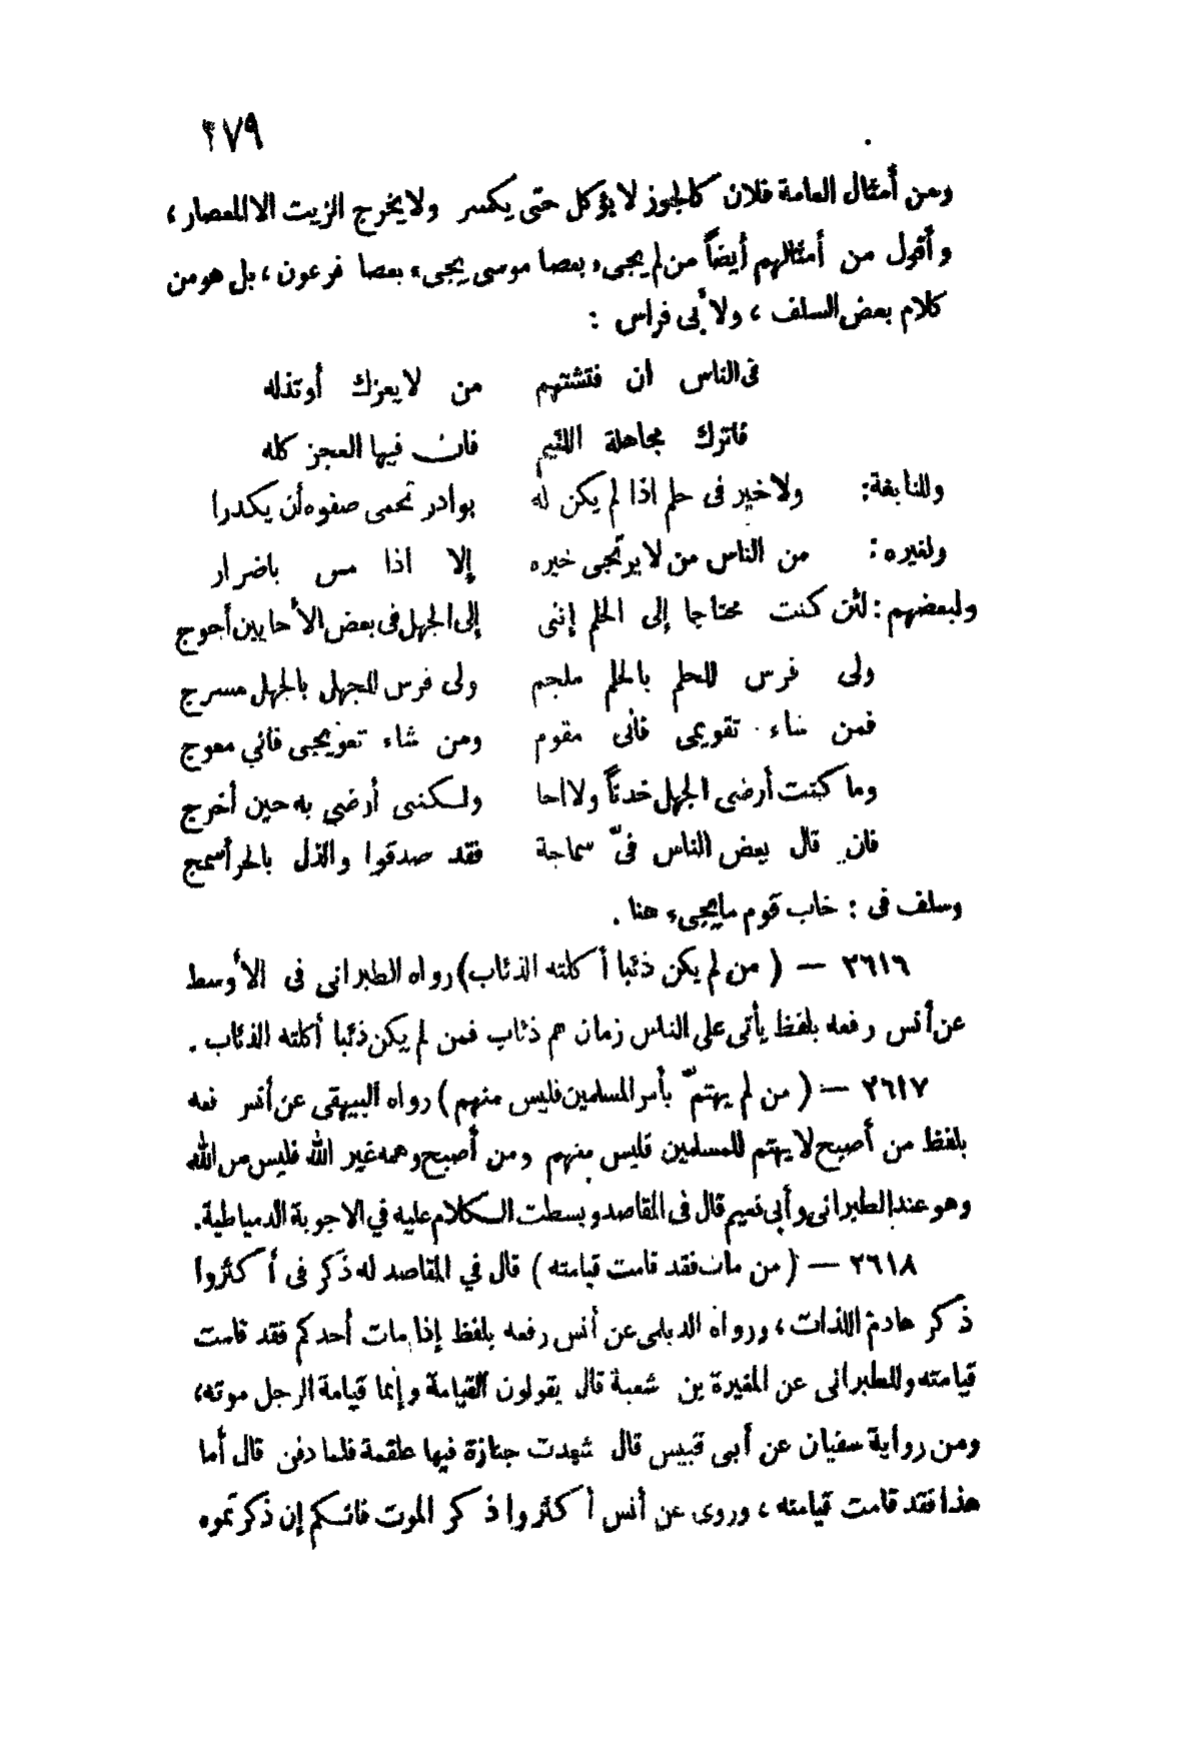 ٢٧٩
ومن أمثال العامة فلان كالجوز لا يؤكل حتى يكسر ولا يخرج الزيت الا المعصار ،
وأقول من أمثالهم أيضاً من لم يجىء بعصا موسى يجىء بعصا فرعون ، بل هو من
كلام بعض السلف ، ولأبى فراس :
فى الناس ان فتشتهم من لا يعزك أو تذله
فاترك مجاهلة اللئيم فان فيها العجز كله
وللنابغة: ولا خير فى حلم اذا لم يكن له بوادر تحمى صفوه أن يكدرا
ولغيره : من الناس من لا يرتجى خيره إلا اذا مس باضرار
ولبعضهم : لئن كنت محتاجا إلى الحلم إننى إلى الجهل فى بعض الأحايين أحوج
ولى فرس للحلم بالحلم ملجم ولى فرس للجهل بالجهل مسرج
فمن شاء تقويمى فانى مقوم ومن شاء تعويجى فاني معوج
وما كنت أرضى الجهل خدناً ولا اخا ولكننى أرضى به حين أخرج
فان قال بعض الناس فىّ سماجة فقد صدقوا والذل بالحر أسمج
وسلف فى : خاب قوم مايجىء هنا .
٢٦١٦ — ( من لم يكن ذئبا أكلته الذئاب ) رواه الطبرانى فى الأوسط
عن أنس رفعه بلفظ يأتى على الناس زمان هم ذئاب فمن لم يكن ذئبا أكلته الذئاب .
٢٦١٧ — ( من لم يهتمّ بأمر المسلمين فليس منهم ) رواه البيهقى عن أنس فعه
بلفظ من أصبح لا يهتم للمسلمين فليس منهم ومن أصبح وهمه غير الله فليس من الله
وهو عند الطبرانى وأبى نعيم قال فى المقاصد وبسطت الكلام عليه في الاجوبة الدمياطية.
٢٦١٨ — ( من مات فقد قامت قيامته ) قال في المقاصد له ذكر فى أكثروا
ذكر هادم اللذات ، ورواه الديلمى عن أنس رفعه بلفظ إذا مات أحدكم فقد قامت
قيامته وللطبرانى عن المغيرة بن شعبة قال يقولون القيامة وإنما قيامة الرجل موته ،
ومن رواية سفيان عن أبى قبيس قال شهدت جنازة فيها علقمة فلما دفن قال أما
هذا فقد قامت قيامته ، وروى عن أنس أكثروا ذكر الموت فانكم إن ذكرتموه